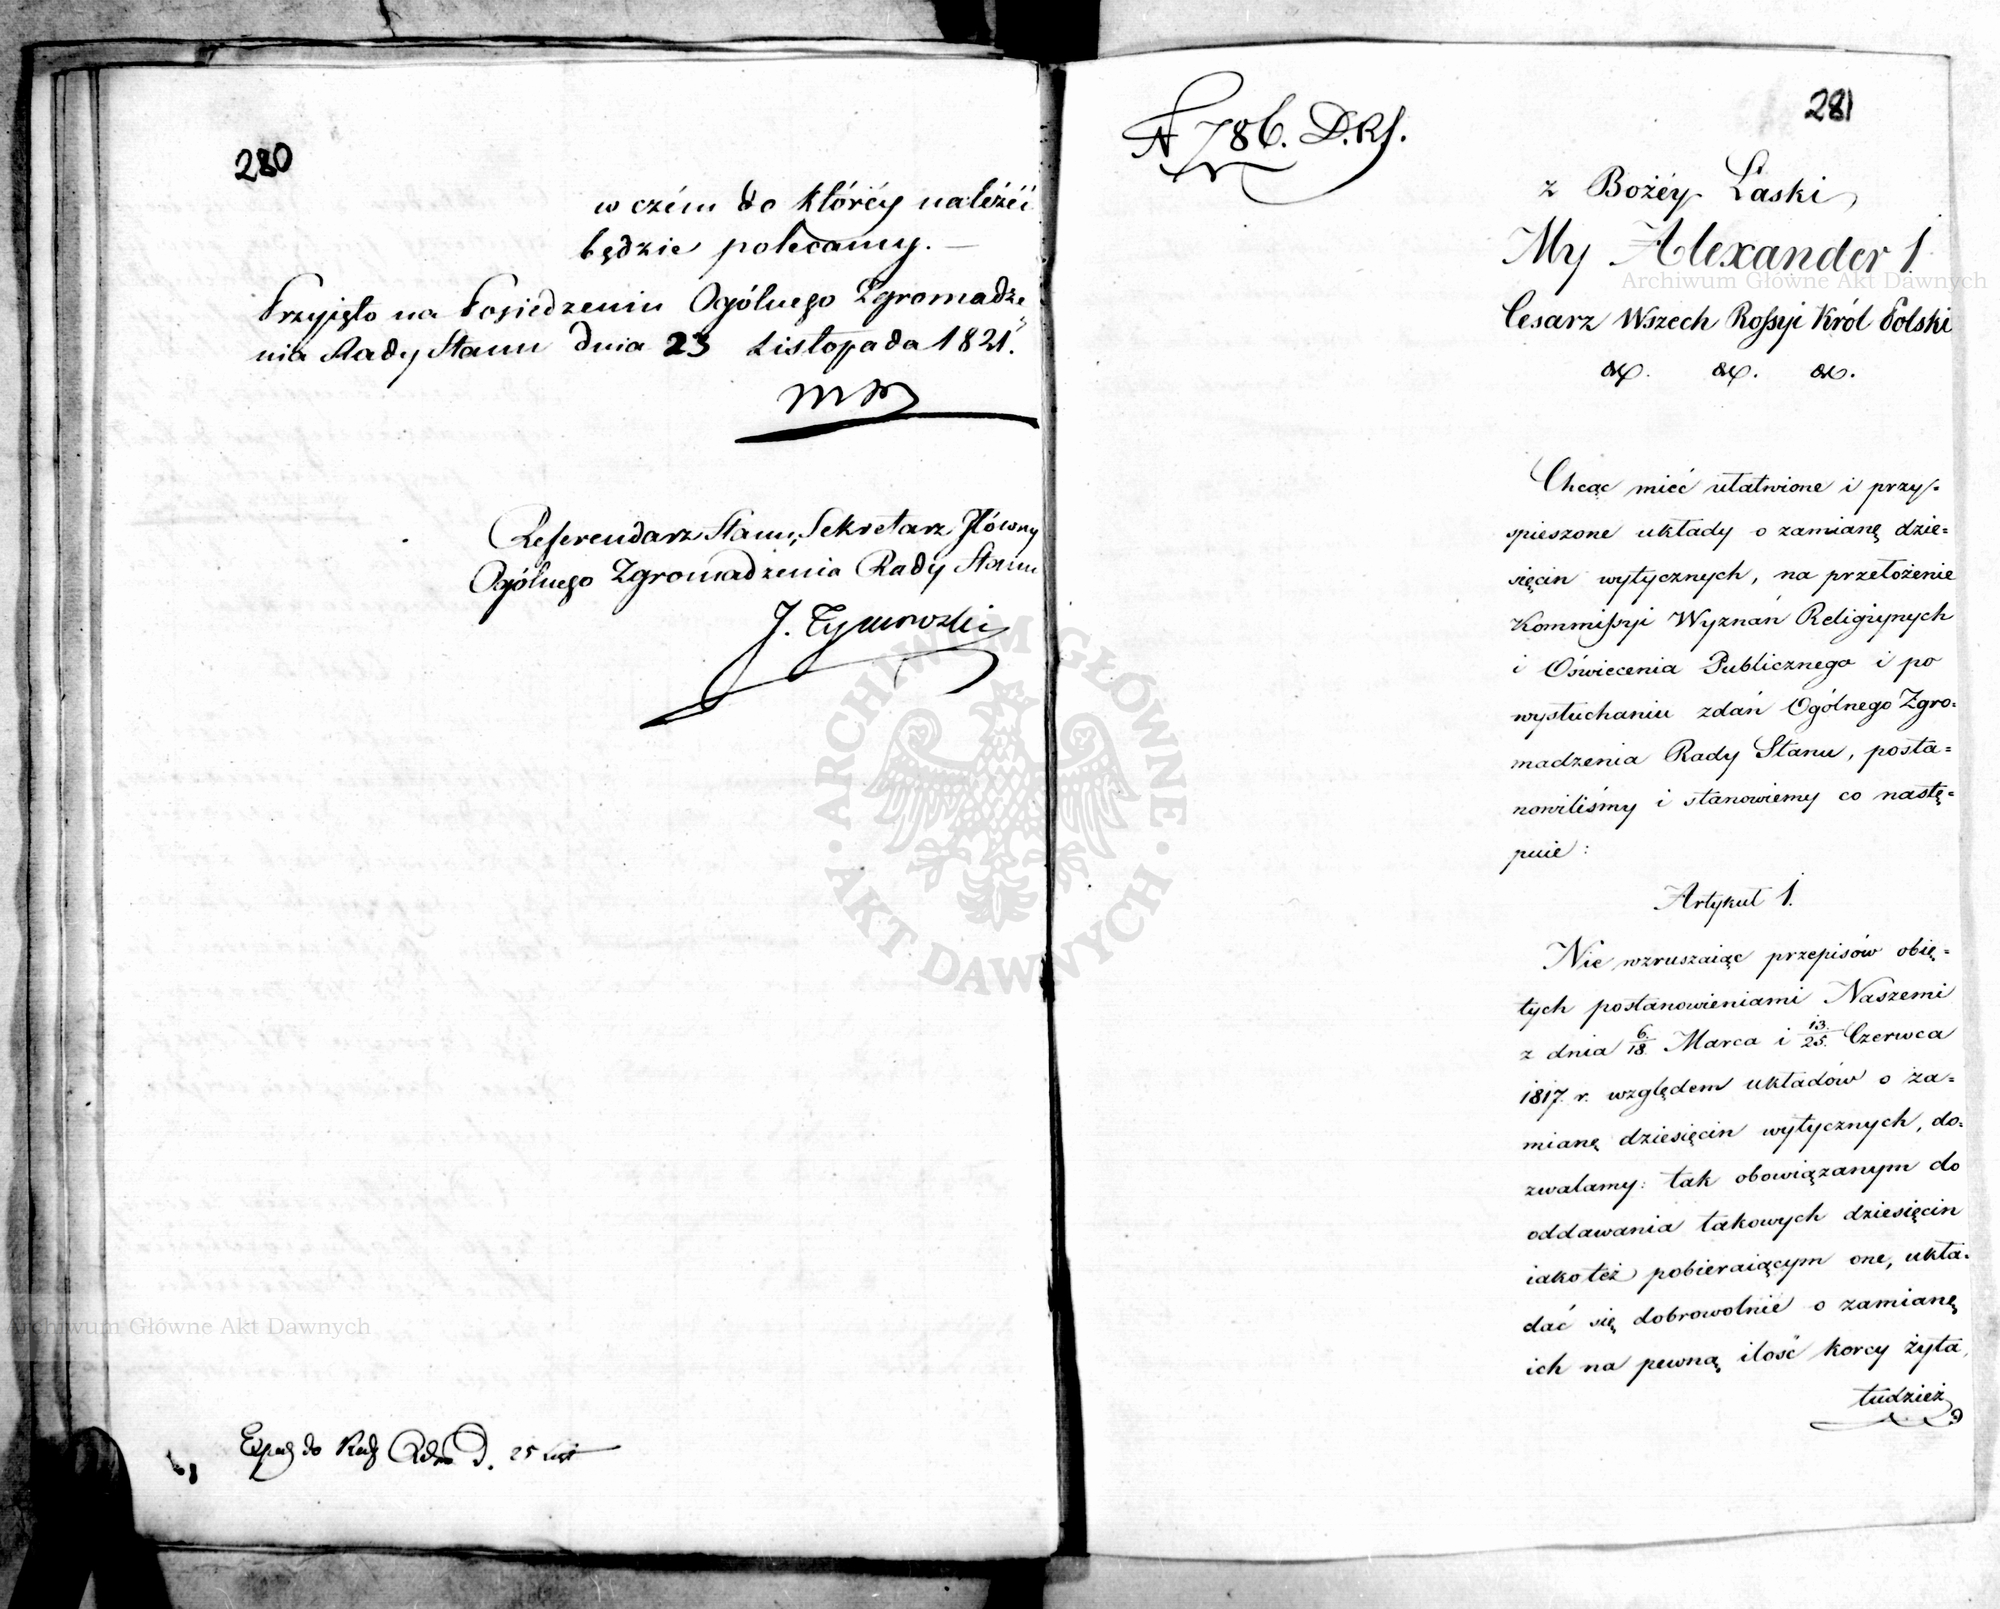 280
w czém do któréy należéć
będzie polecamy. —
Przyięto na Posiedzeniu Ogólnego Zgromadze-
nia Rady Stanu dnia 23 Listopada 1821.
Referendarz Stanu, Sekretarz Główny
Ogólnego Zgromadzenia Rady Stanu
J. Tymowski
do d. 25 List
281
N 786. D.R.S.
z Bożéy Łaski
My Alexander I.
Cesarz Wszech Rossyi Król Polski
&c. &c. &c.
Chcąc mieć ułatwione i przy-
spieszone układy o zamianę dzie=
sięcin wytycznych, na przełożenie
Kommissyi Wyznań Religiynych
i Oświecenia Publicznego i po
wysłuchaniu zdań Ogólnego Zgro=
madzenia Rady Stanu, posta=
nowiliśmy i stanowiemy co nastę=
puie:
Artykuł 1.
Nie wzruszaiąc przepisów obię=
tych postanowieniami Naszemi
z dnia 6/18 Marca i 13/25 Czerwca
1817. r. względem układów o za=
mianę dziesięcin wytycznych, do=
zwalamy: tak obowiązanym do
oddawania takowych dziesięcin
iako też pobieraiącym one, ukła=
dać się dobrowolnie o zamianę
ich na pewną ilość korcy żyta,
tudzież
ARCHIWUM GŁÓWNE AKT DAWNYCH
Archiwum Główne Akt Dawnych
Archiwum Główne Akt Dawnych